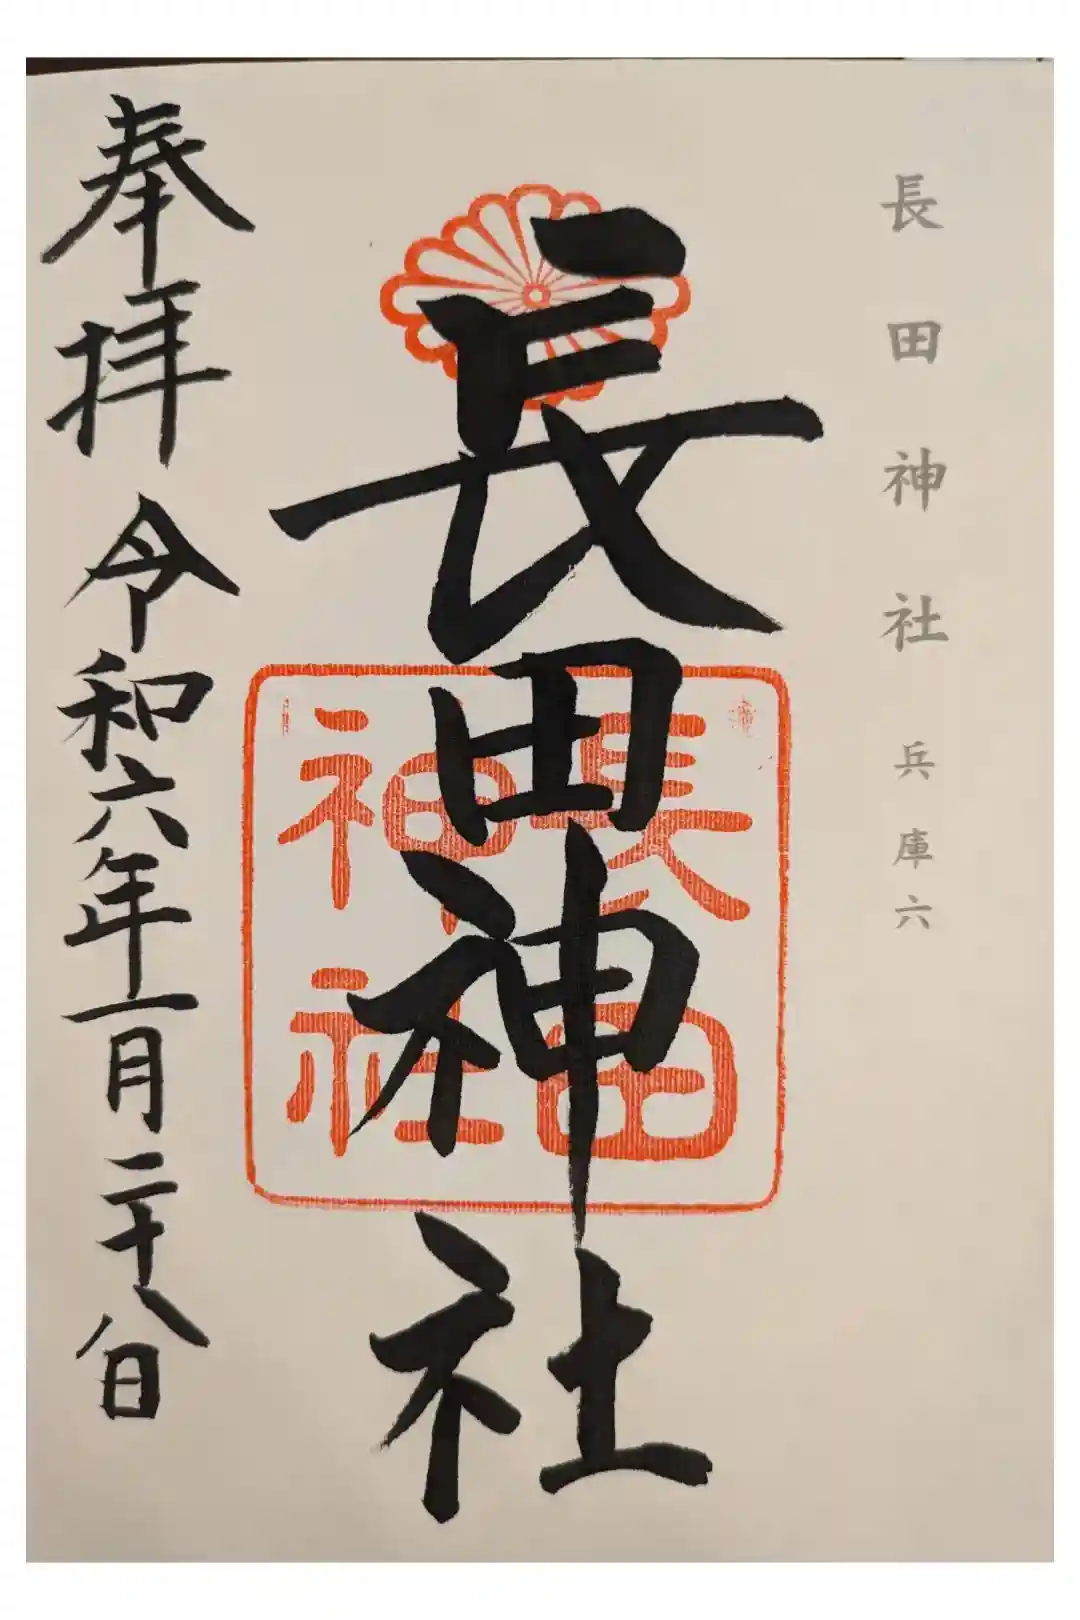 長田神社 兵庫六
長田神社
長田
神社
奉拝 令和六年一月二十八日